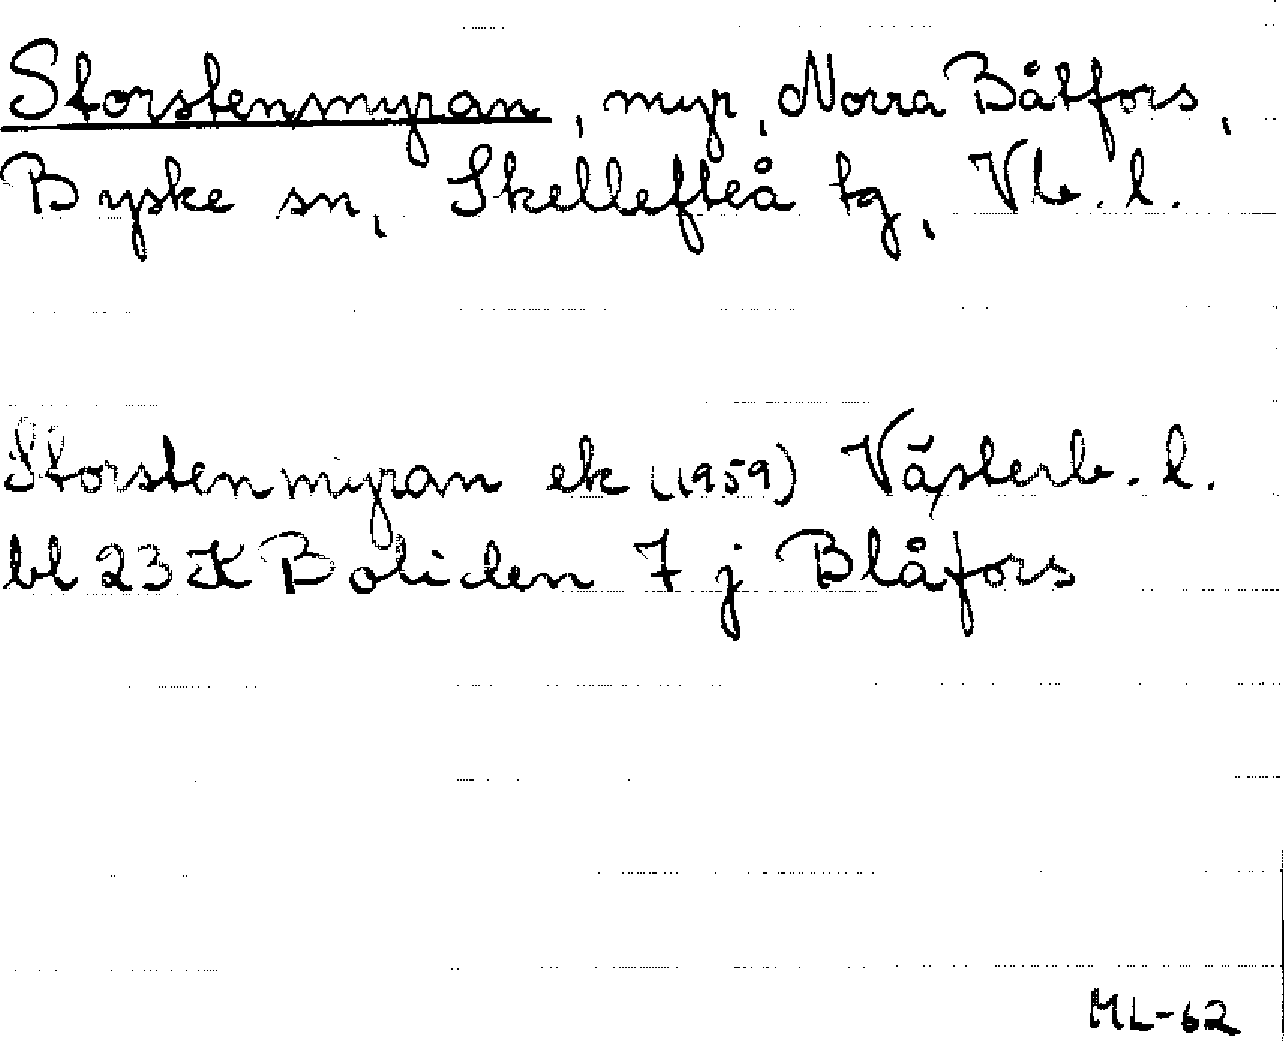 Storstenmyran, myr, Norra Båtfors,
Byske sn, Skellefteå tg, Vb. l.
Storstenmyran ek (1959) Västerb. l.
bl 23 K Boliden 7 j Blåfors
ML-62